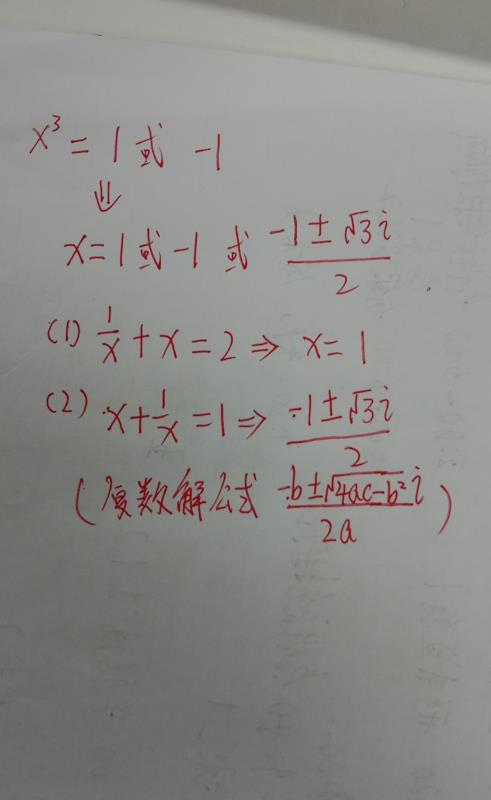 x³ = 1 或 -1
⇓
x = 1 或 -1 或 (-1±√3i)/2
(1) 1/x + x = 2 ⇒ x = 1
(2) x + 1/x = 1 ⇒ (-1±√3i)/2
(复数解公式 (-b±√(4ac-b²)i)/2a)